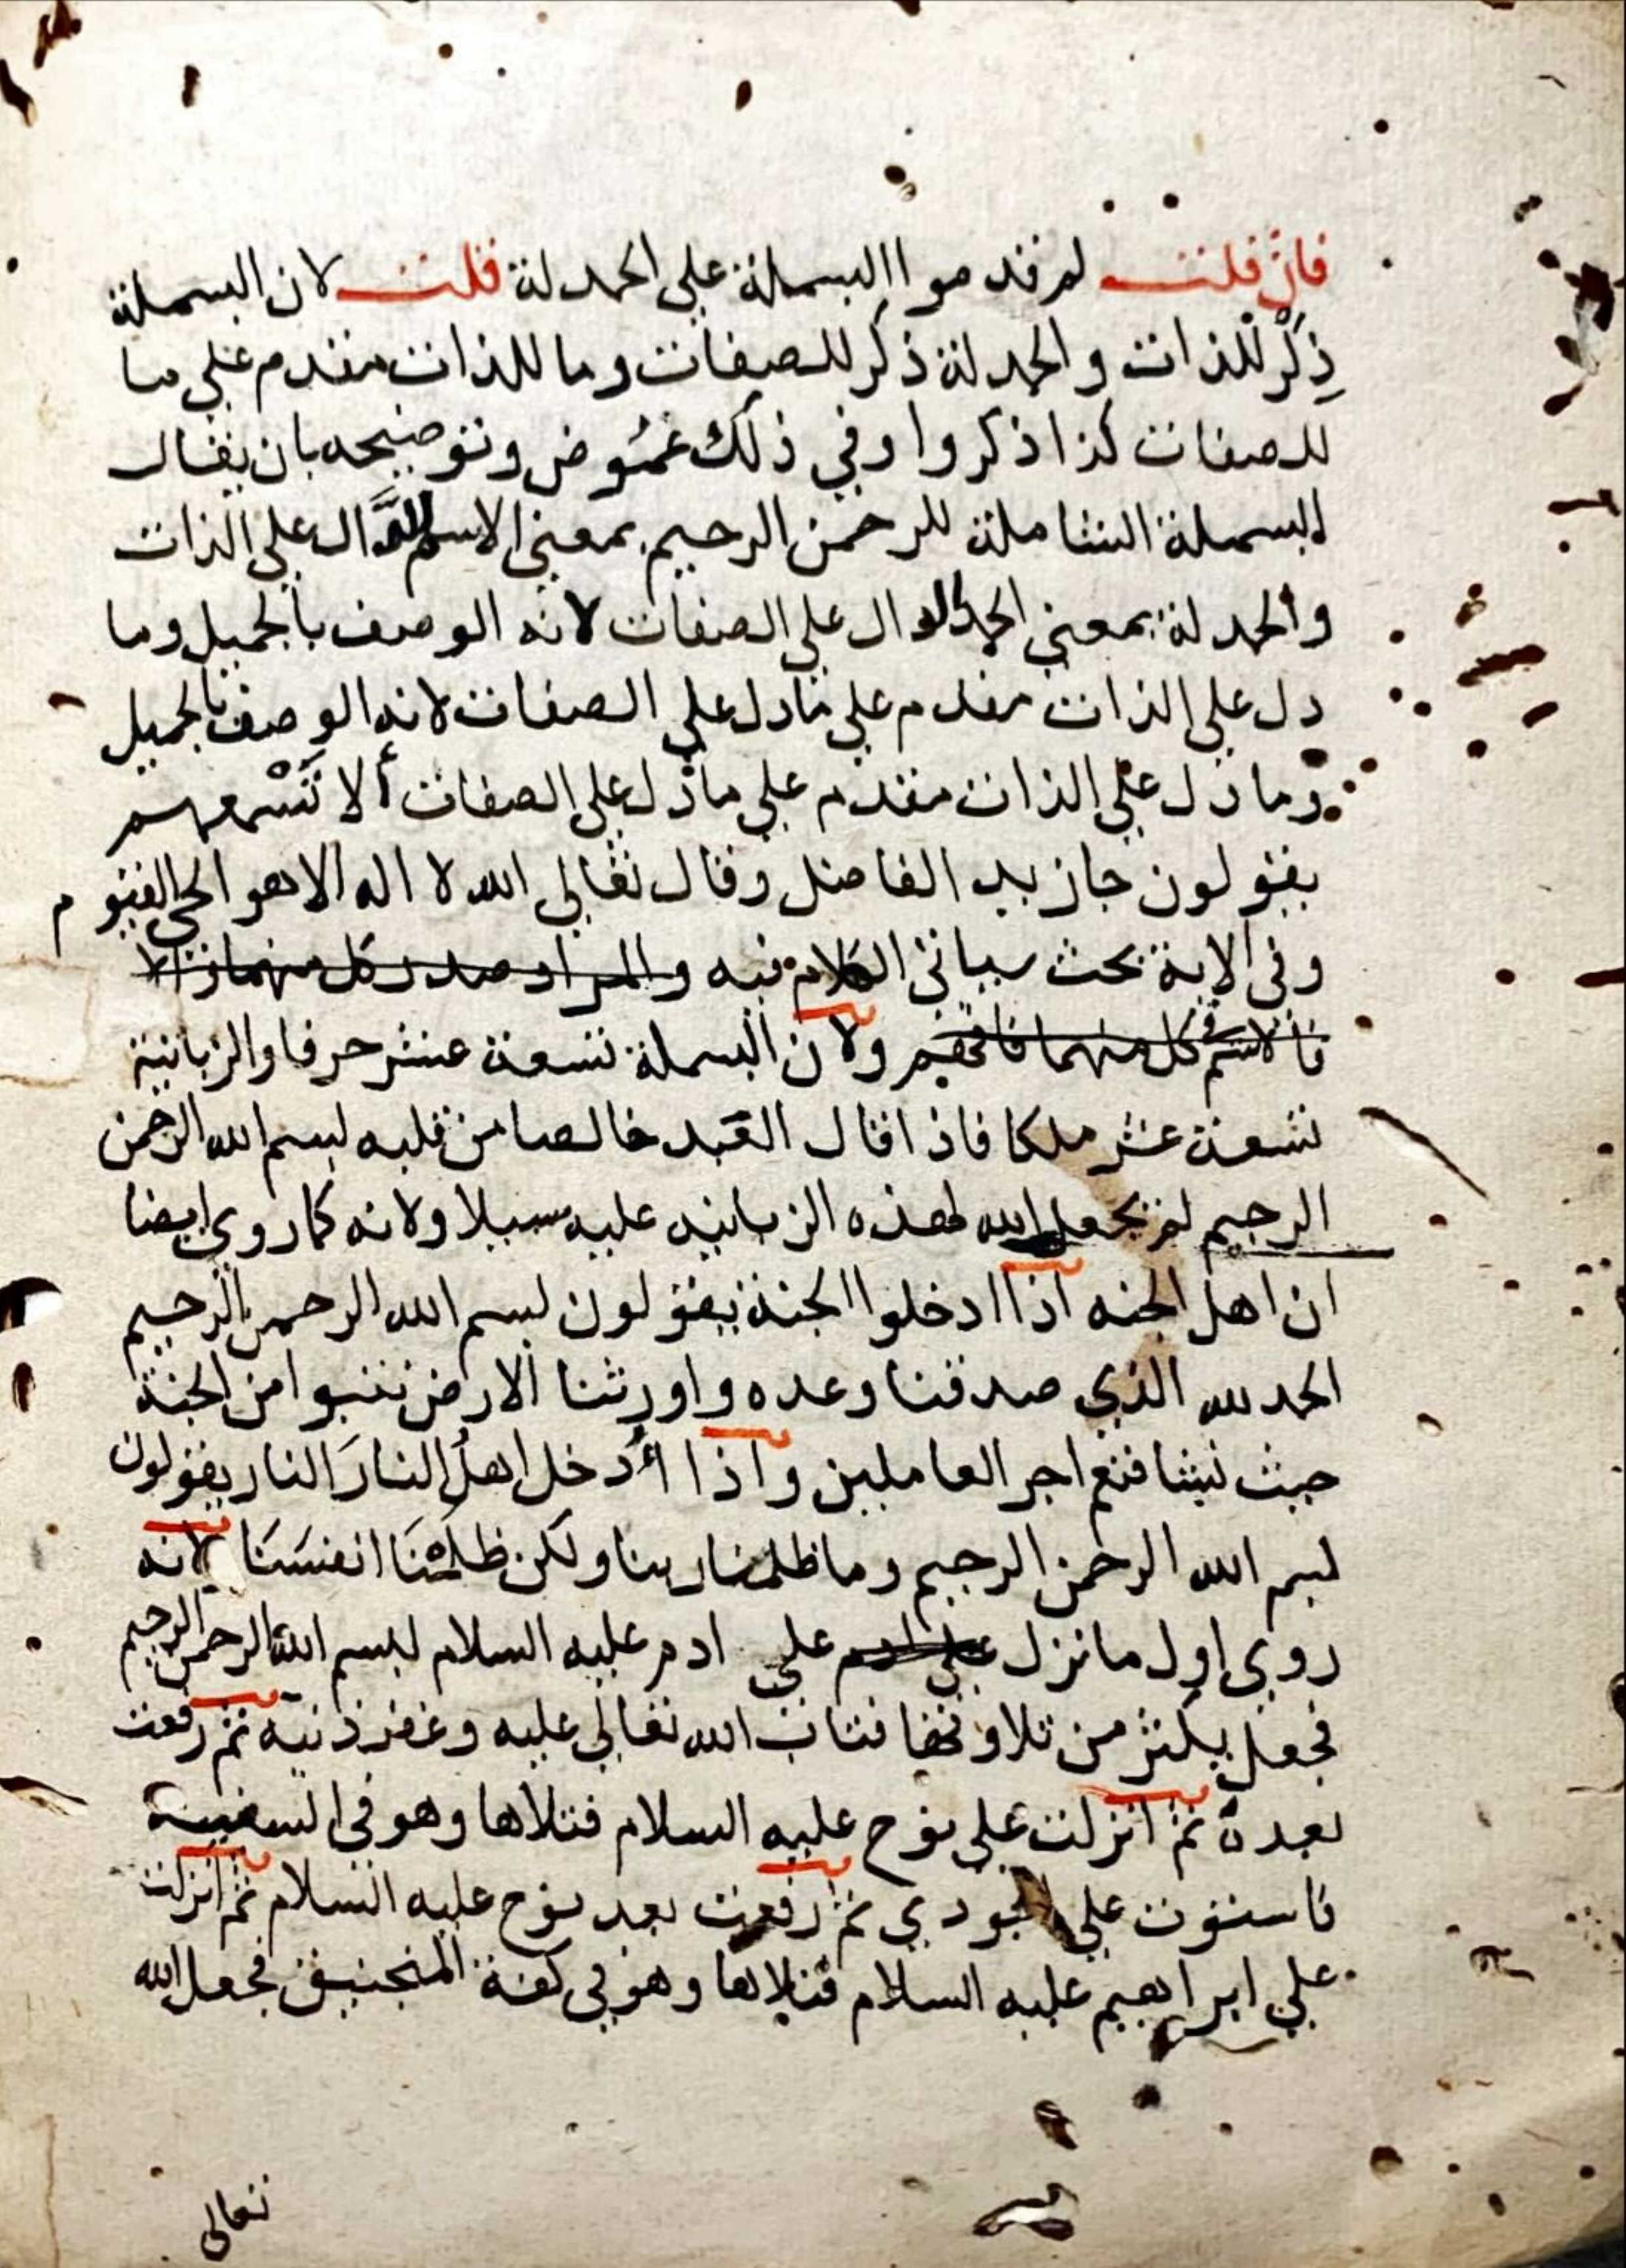 فان قلت لم قدموا البسملة على الحمدلة قلت لان البسملة
ذِكْر للذات والحمدلة ذكر للصفات وما للذات مقدم على ما
للصفات كذا ذكروا وفي ذلك غموض وتوضيحه بان يقال
البسملة الشاملة للرحمن الرحيم بمعنى الاسم الدَّال على الذات
والحمدلة بمعنى الحمد الدال على الصفات لانه الوصف بالجميل وما
دل على الذات مقدم على مادل على الصفات لانه الوصف بالجميل
وما دل على الذات مقدم على ما دل على الصفات ألا تَسْمعهم
يقولون جا زيد الفاضل وقال تعالى الله لا اله الا هو الحي القيوم
وفي الاية بحث سياتي الكلام فيه والمراد صدر كل منهما
كل منهما ولان البسملة تسعة عشر حرفا والزبانية
تسعة عشر ملكا فاذا قال العبد خالصا من قلبه بسم الله الرحمن
الرحيم لم يجعل الله لهذه الزبانيه عليه سبيلا ولانه كما روي ايضا
ان اهل الجنه اذا ادخلوا الجنة يقولون بسم الله الرحمن الرحيم
الحمد لله الذي صدقنا وعده واورثنا الارض نتبوا من الجنة
حيث نشا فنعم اجر العاملين واذا أُدخل اهلُ النارَ النار يقولون
بسم الله الرحمن الرحيم وما ظلمنا ربنا ولكن ظلمْنَا انفسَنَا لانه
روي اول ما نزل على ادم على ادم عليه السلام بسم الله الرحمن الرحيم
فجعل يكثر من تلاوتها فتاب الله تعالى عليه وغفر ذنبه ثم رفعت
بعده ثم انزلت على نوح عليه السلام فتلاها وهو في السفينة
فاستوت على الجودي ثم رفعت بعد نوح عليه السلام ثم انزلت
على ابراهيم عليه السلام فتلاها وهو في كفة المنجنيق فجعل الله
تعالى